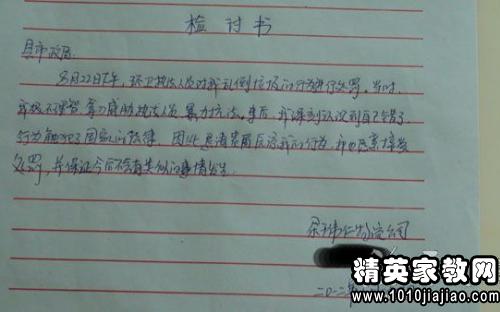 检讨书
县市政局:
8月22日下午,环卫执法人员对我乱倒垃圾的行为进行处罚。当时
我极不理智,拿刀威胁执法人员,暴力抗法。事后,我深刻认识到自己错了
行为触犯了国家的法律。因此恳请贵局原谅我的行为,我也愿意接受
处罚,并保证今后不会有类似的事情发生。
物流公司
二〇一二年
精英家教网
www.1010jiajiao.com